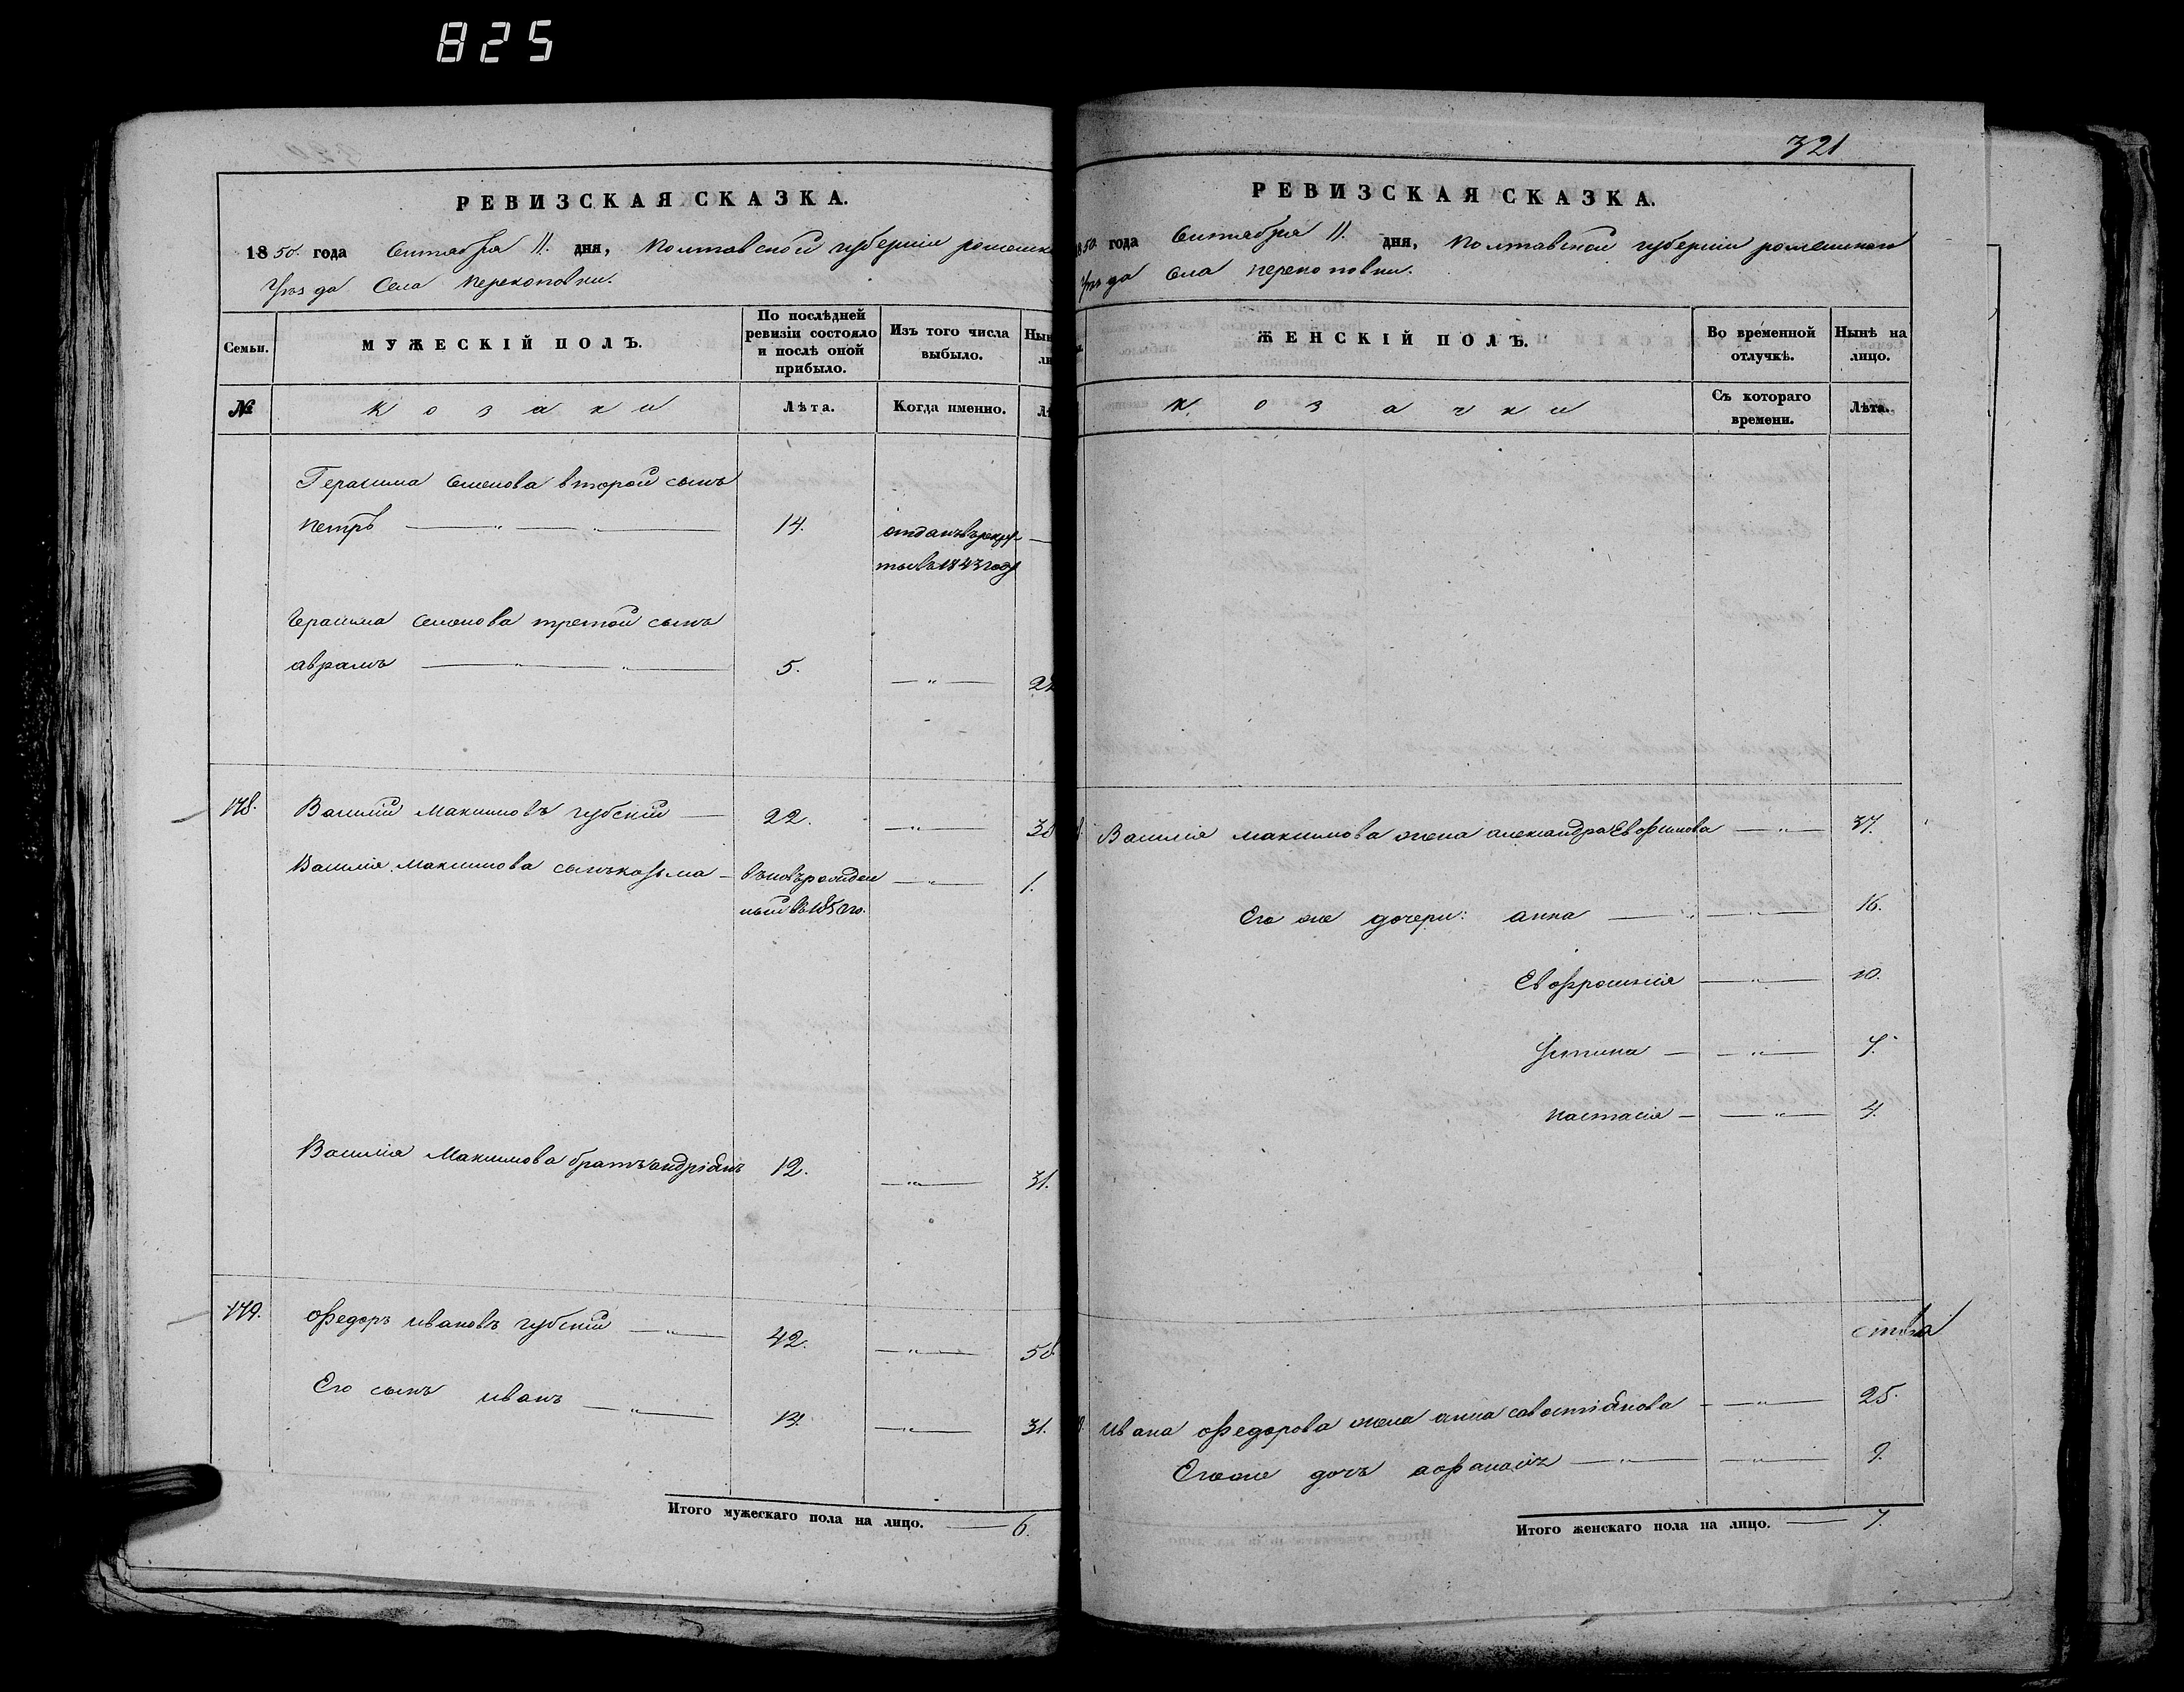 825
РЕВИЗСКАЯ СКАЗКА.
1850. года Сентября 11. дня, Полтавской губерніи роменск
Уѣзда Села Перекоповки.
Семьи.
МУЖЕСКІЙ ПОЛЪ.
По послѣдней ревизіи состояло и послѣ оной прибыло.
Изъ того числа выбыло.
Нын
ли
№
Козаки
Лѣта.
Когда именно.
Лѣ
Герасима Семенова второй сынъ
Петръ 14. отданъ въ рекру-
ты въ 1843 году
Герасима Семенова третой сынъ
аврамъ 5. 22
178. Василій Максимовъ губскій 22. 38
Василія Максимова сынъ козьма вновь рожден 1.
ный въ 1850 го.
Василія Максимова братъ андріянъ 12. 31.
179. Федоръ Ивановъ губскій 42. 58
Его сынъ Иванъ 13. 31.
Итого мужескаго пола на лицо. 6.
321
РЕВИЗСКАЯ СКАЗКА.
1850. года Сентября 11. дня, Полтавской губерніи роменскаго
Уѣзда Села Перекоповки.
ЖЕНСКІЙ ПОЛЪ.
Во временной отлучкѣ.
Нынѣ на лицо.
Козачки
Съ котораго времени.
Лѣта.
Василія Максимова жена александра Евфимова 37.
Его же дочери: анна 16.
Евфросинія 10.
Устина 7.
Настасія 4.
Ивана Федорова жена анна савостіянова 25.
Его же дочь афанасія 9.
Итого женскаго пола на лицо. 7.